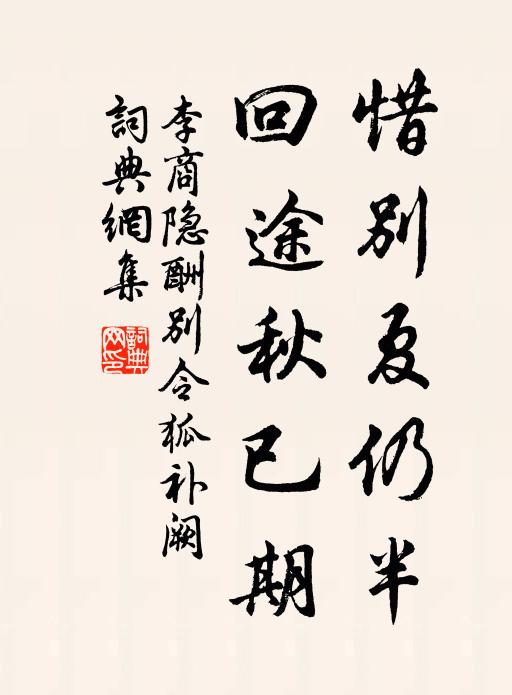 惜别夏仍半
回途秋已期
李商隐酬别令狐补阙
詞典網集
詞典网印